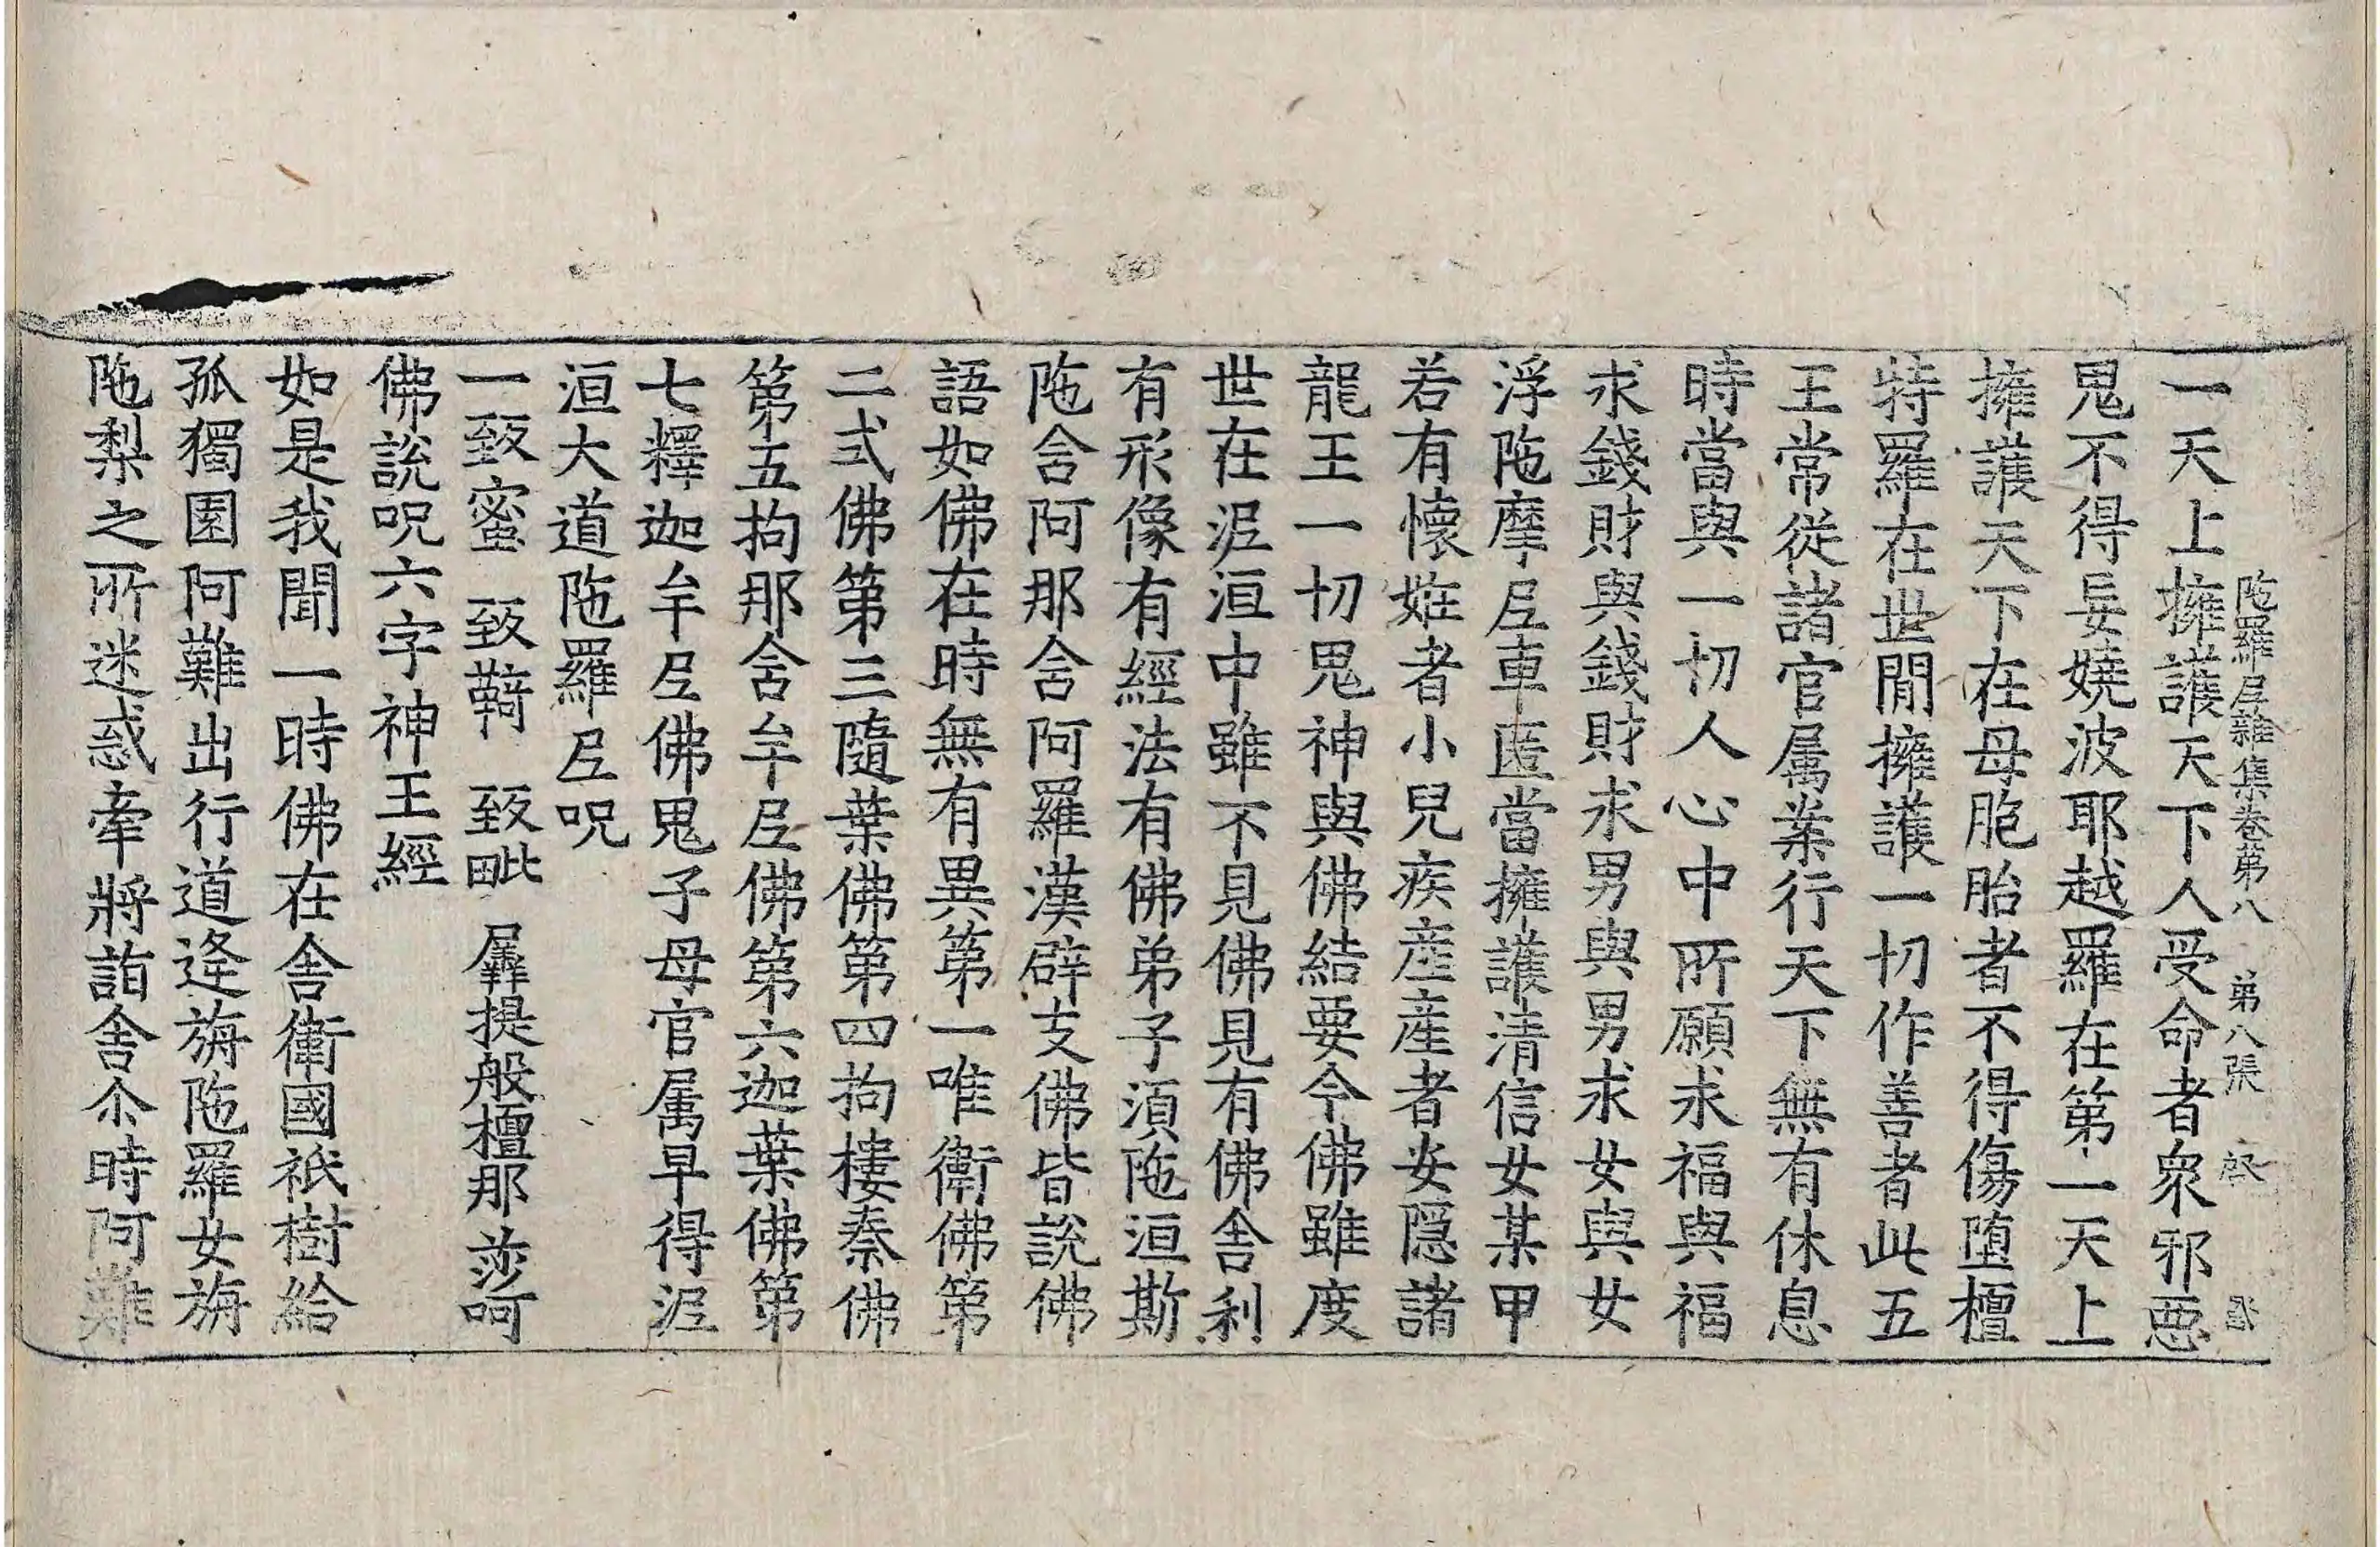 陁羅𡰱雜集卷第八 第八張
一天上擁護天下人受命者衆邪惡
鬼不得妄嬈波耶越羅在第一天上
擁護天下在母胞胎者不得傷墮檀
特羅在世閒擁護一切作善者此五
王常從諸官属業行天下無有休息
時當與一切人心中所願求福與福
求錢財與錢財求男與男求女與女
浮陁摩𡰱車匿當擁護清信女某甲
若有懷姙者小兒疾産産者安隠諸
龍王一切鬼神與佛結要令佛雖度
世在泥洹中雖不見佛見有佛舎利
有形像有經法有佛弟子湏陁洹斯
陁含阿那含阿羅漢辟支佛皆說佛
語如佛在時無有異第一唯衛佛第
二式佛第三隨葉佛第四拘樓秦佛
第五拘那含牟𡰱佛第六迦葉佛第
七釋迦牟𡰱佛鬼子母官属早得泥
洹大道陁羅𡰱呪
一致蜜 致䩭 致毗 羼提般檀那 莎呵
佛說呪六字神王經
如是我聞一時佛在舎衛國祇樹給
孤獨園阿難出行道逢旃陁羅女旃
陁梨之所迷惑牽將詣舎尒時阿難